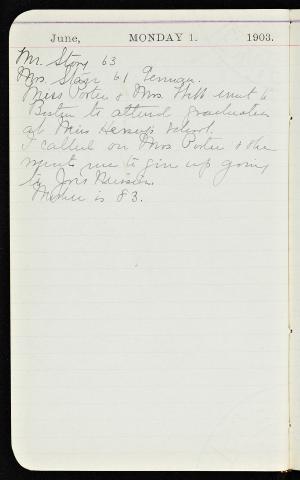 June, MONDAY 1. 1903.
Mr. Story 63
Mrs. 61
Miss Porter & Mrs. went to
Boston to attend graduation
at Miss Hersey's School.
I called on Mrs Porter & she
me to give up going
to
Mother is 83.